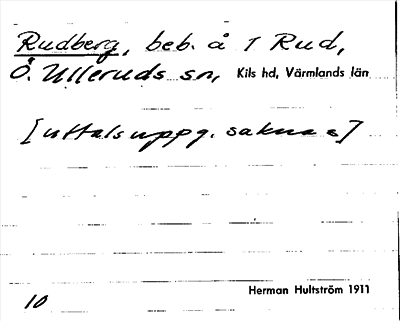 Rudberg, beb. å 1 Rud,
Ö. Ulleruds sn, Kils hd, Värmlands län
[uttalsuppg. saknas]
Herman Hultström 1911
10